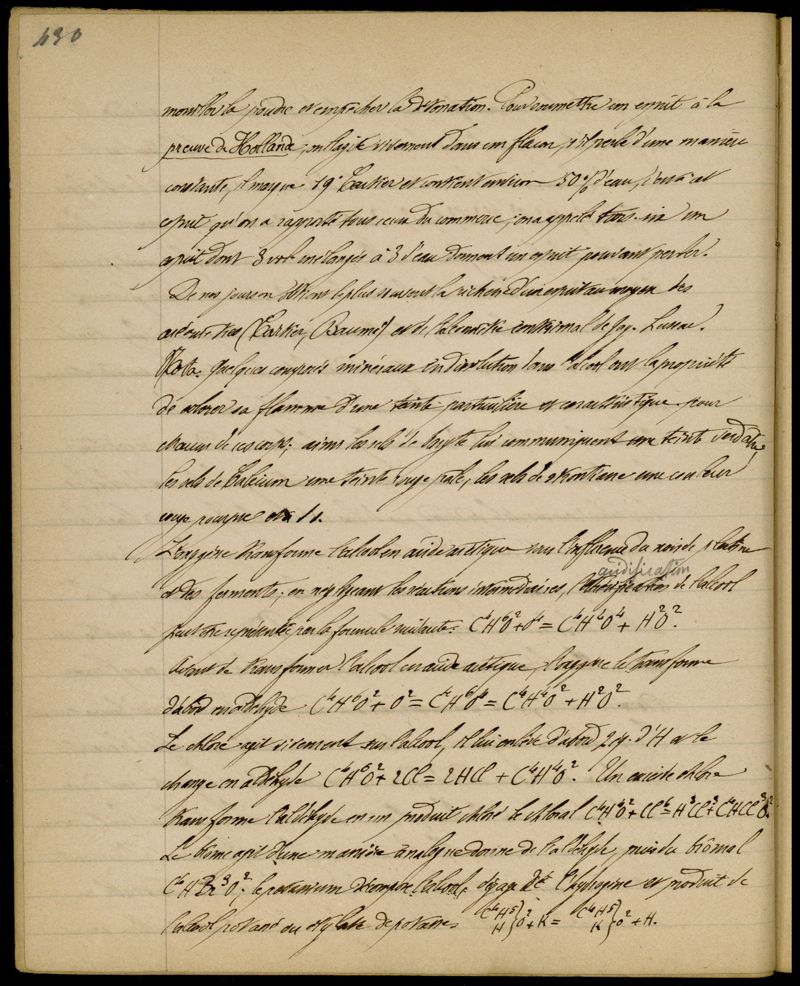 430
mouiller la poudre et empêcher la détonation. Pour soumettre un esprit à la
preuve de Hollande, on l'agite vivement dans un flacon, s'il perle d'une manière
constante, il marque 19° Cartier et contient environ 50% d'eau, c'est à cet
esprit qu'on a rapporté tous ceux du commerce; on a appelé trois-six un
esprit dont 3 vol. mélangés à 3 d'eau donnent un esprit pouvant perler.
De nos jours on obtient le plus souvent la richesse d'un esprit au moyen des
aréomètres (Cartier, Baumé) et de l'alcoomètre centésimal de Gay-Lussac.
Nota. Quelques composés minéraux en dissolution dans l'alcool ont la propriété
de colorer sa flamme d'une teinte particulière et caractéristique pour
chacun de ces corps; ainsi les sels de baryte lui communiquent une teinte verdâtre,
les sels de Calcium une teinte rouge pâle, les sels de strontiane une couleur
rouge pourpre
L'oxygène transforme l'alcool en acide acétique sous l'influence du noir de platine
et des ferments; en négligeant les réactions intermédiaires, l'acidification de l'alcool
peut être représentée par la formule suivante: C⁴H⁶O²+O⁴ = C⁴H⁴O⁴ + H²O².
Avant de transformer l'alcool en acide acétique, l'oxygène le transforme
d'abord en aldehyde C⁴H⁶O²+O² = C⁴H⁶O⁴ = C⁴H⁴O² + H²O².
Le chlore agit vivement sur l'alcool, il lui enlève d'abord 2 éq. d'H et le
change en aldéhyde C⁴H⁶O²+2Cl = 2HCl + C⁴H⁴O². Un excès de chlore
transforme l'aldéhyde en un produit chloré le chloral C⁴H⁴O²+Cl⁶=H³Cl³+C⁴HCl³O².
Le brome agit d'une manière analogue donne de l'aldéhyde, puis du brômal
C⁴HBr³O²; le potassium décompose l'alcool, dégage de l'hydrogène et produit de
l'alcool potassé ou éthylate de potasse. C⁴H⁵ H}O²+K = C⁴H⁵ K}O²+H.